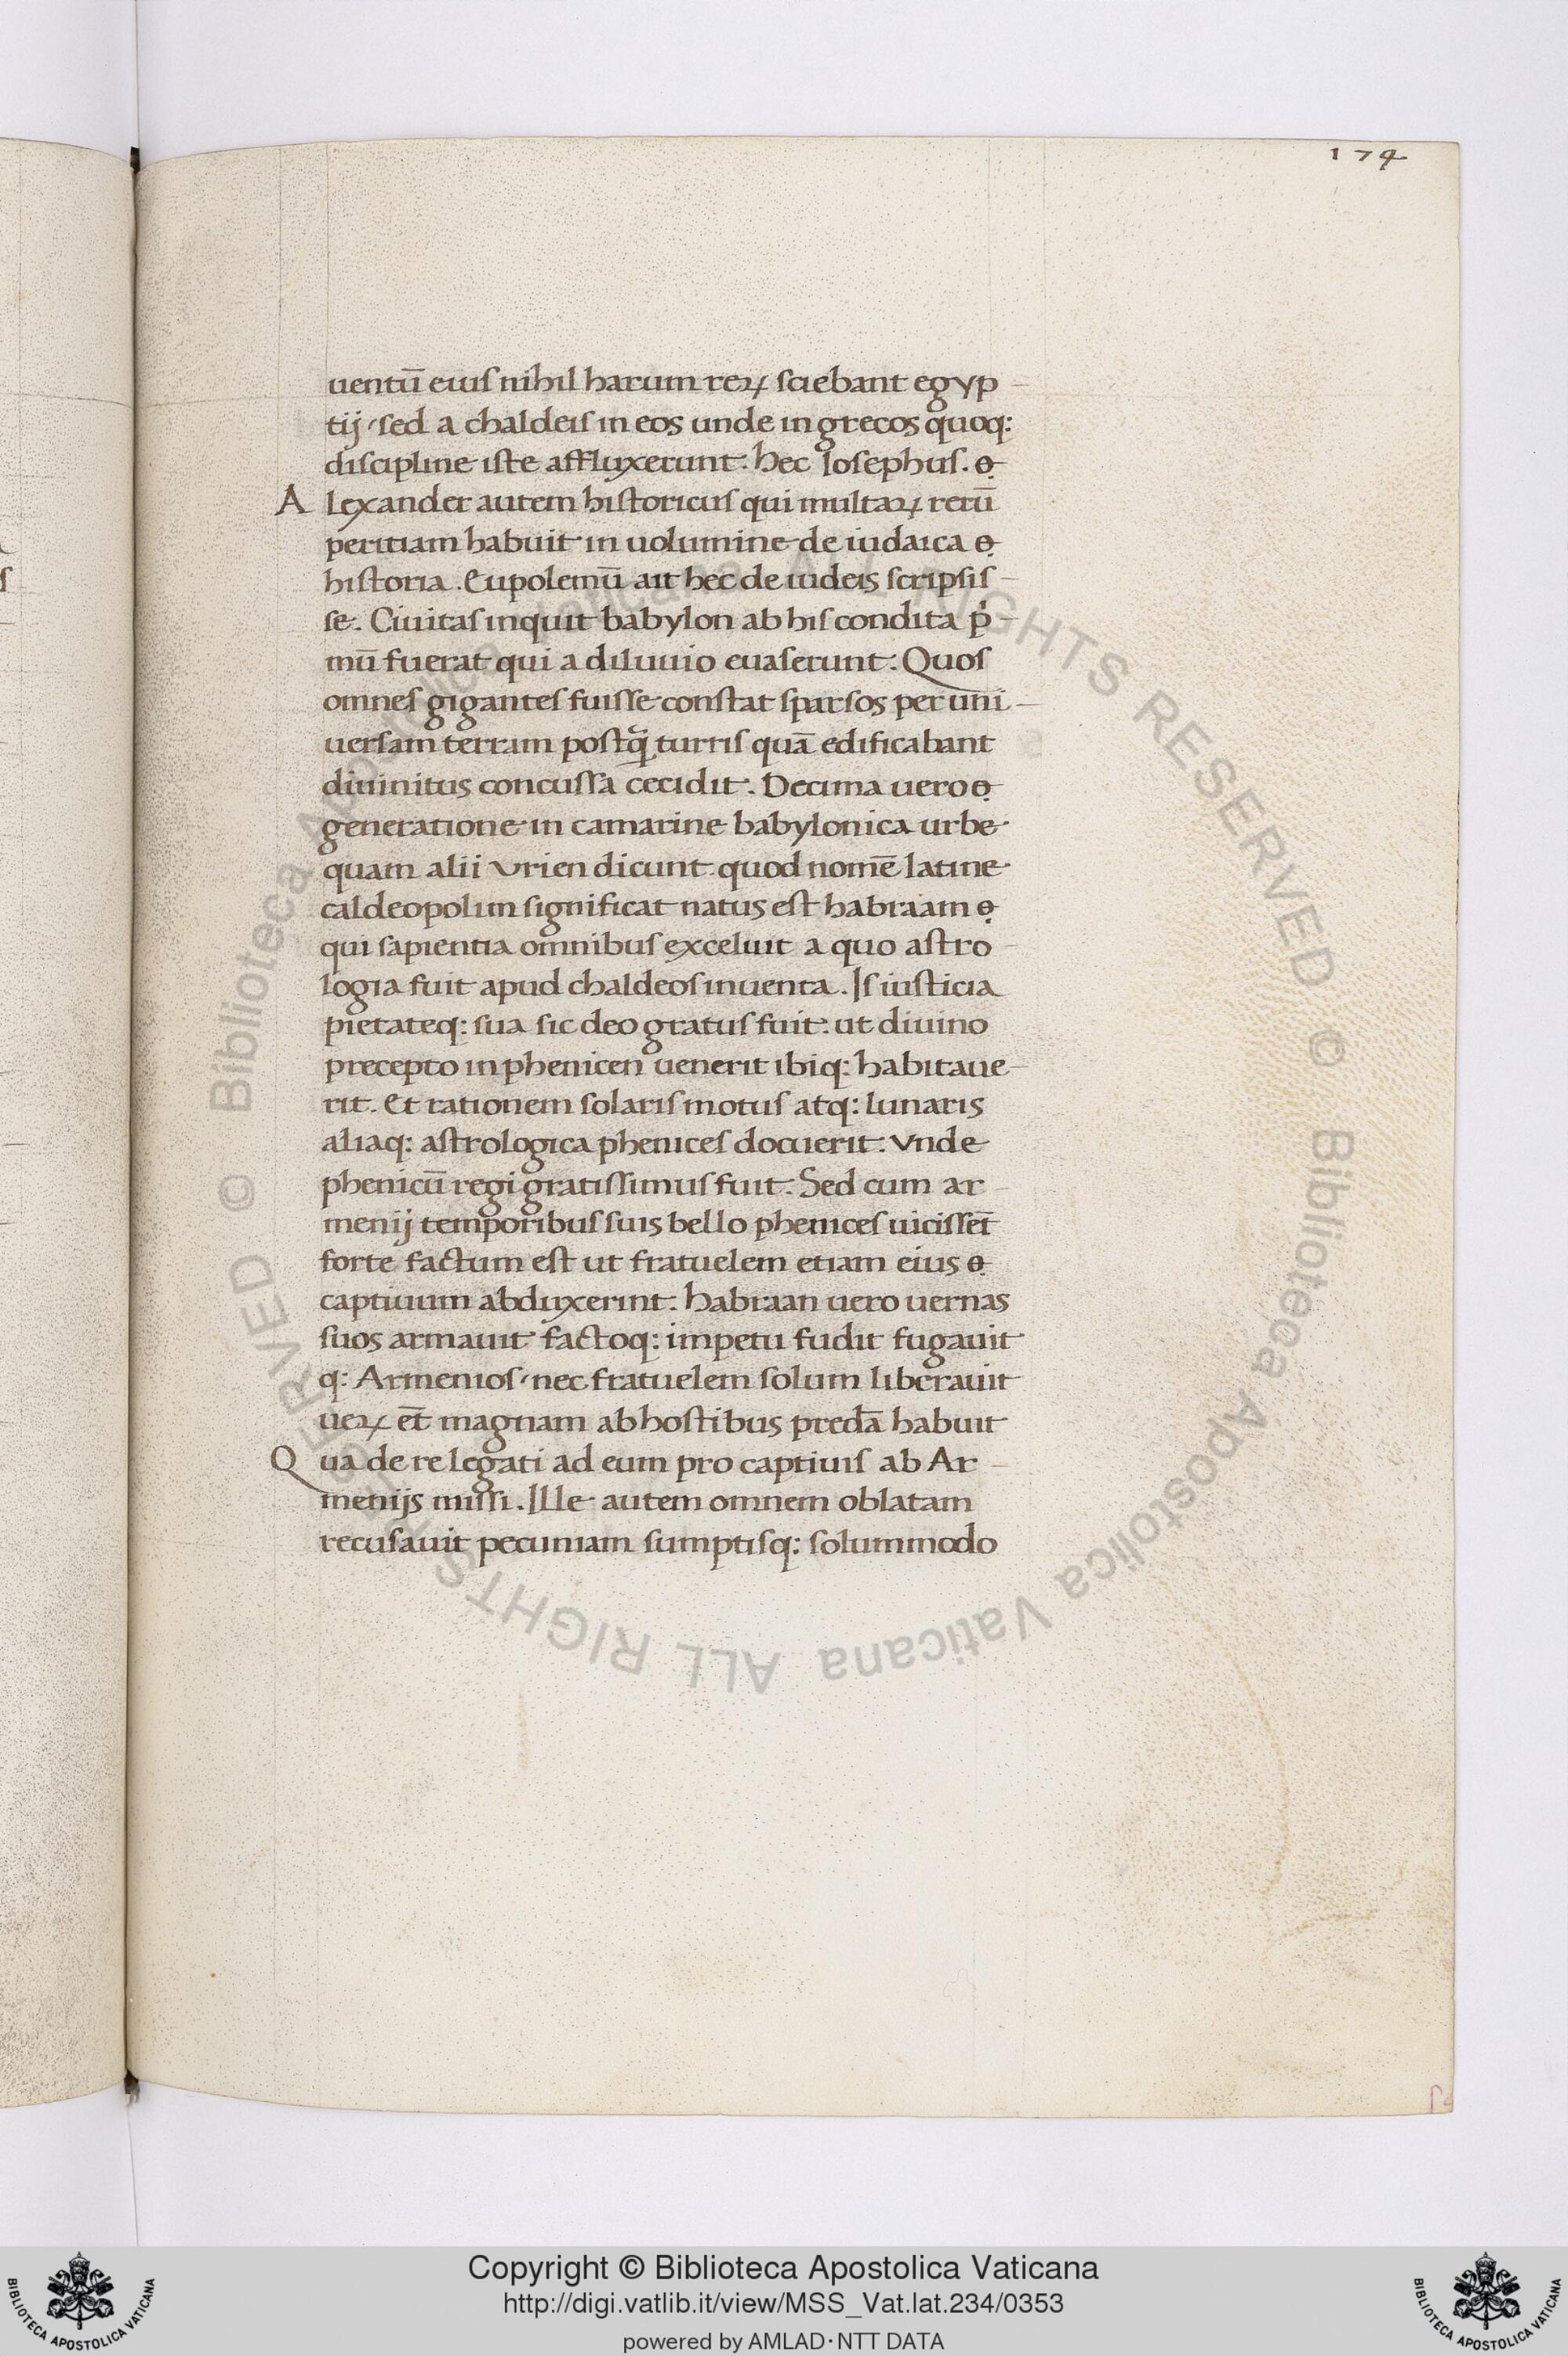 174
uentū eius nihil harum reꝝ sciebant egyp-
tij, sed a chaldeis in eos unde in grecos quoq:
discipline iste affluxerunt. hec Iosephus. ẹ
A lexander autem historicus qui multaꝝ rerū
peritiam habuit in uolumine de iudaica ẹ
historia. Eupolemū ait hec de iudeis scripsis-
se. Ciuitas inquit babylon ab his condita p̍-
mū fuerat qui a diluuio euaserunt. Quos
omnes gigantes fuisse constat sparsos per uni-
uersam terram postq̄ turris quā edificabant
diuinitus concussa cecidit. Decima uero ẹ
generatione in camarine babylonica urbe
quam alii vrien dicunt. quod nomē latine
caldeopolim significat natus est habraam ẹ
qui sapientia omnibus exceluit a quo astro-
logia fuit apud chaldeos inuenta. Is iusticia
pietateq: sua sic deo gratus fuit: ut diuino
precepto in phenicen uenerit ibiq: habitaue-
rit. Et rationem solaris motus atq: lunaris
aliaq: astrologica phenices docuerit: vnde
phenicū regi gratissimus fuit. Sed cum ar-
menij temporibus suis bello phenices uicisset̄
forte factum est ut fratuelem etiam eius ẹ
captiuum abduxerint: habraan uero uernas
suos armauit factoq: impetu fudit fugauit
q: Armenios, nec fratuelem solum liberauit
ueꝝ et̄ magnam ab hostibus predā habuit
Q ua de re legati ad eum pro captiuis ab Ar-
menijs missi. Ille autem omnem oblatam
recusauit pecuniam sumptisq: solummodo
© Biblioteca Apostolica Vaticana ALL RIGHTS RESERVED © Biblioteca Apostolica Vaticana ALL RIGHTS RESERVED
Copyright © Biblioteca Apostolica Vaticana
http://digi.vatlib.it/view/MSS_Vat.lat.234/0353
powered by AMLAD·NTT DATA
BIBLIOTECA APOSTOLICA VATICANA
BIBLIOTECA APOSTOLICA VATICANA